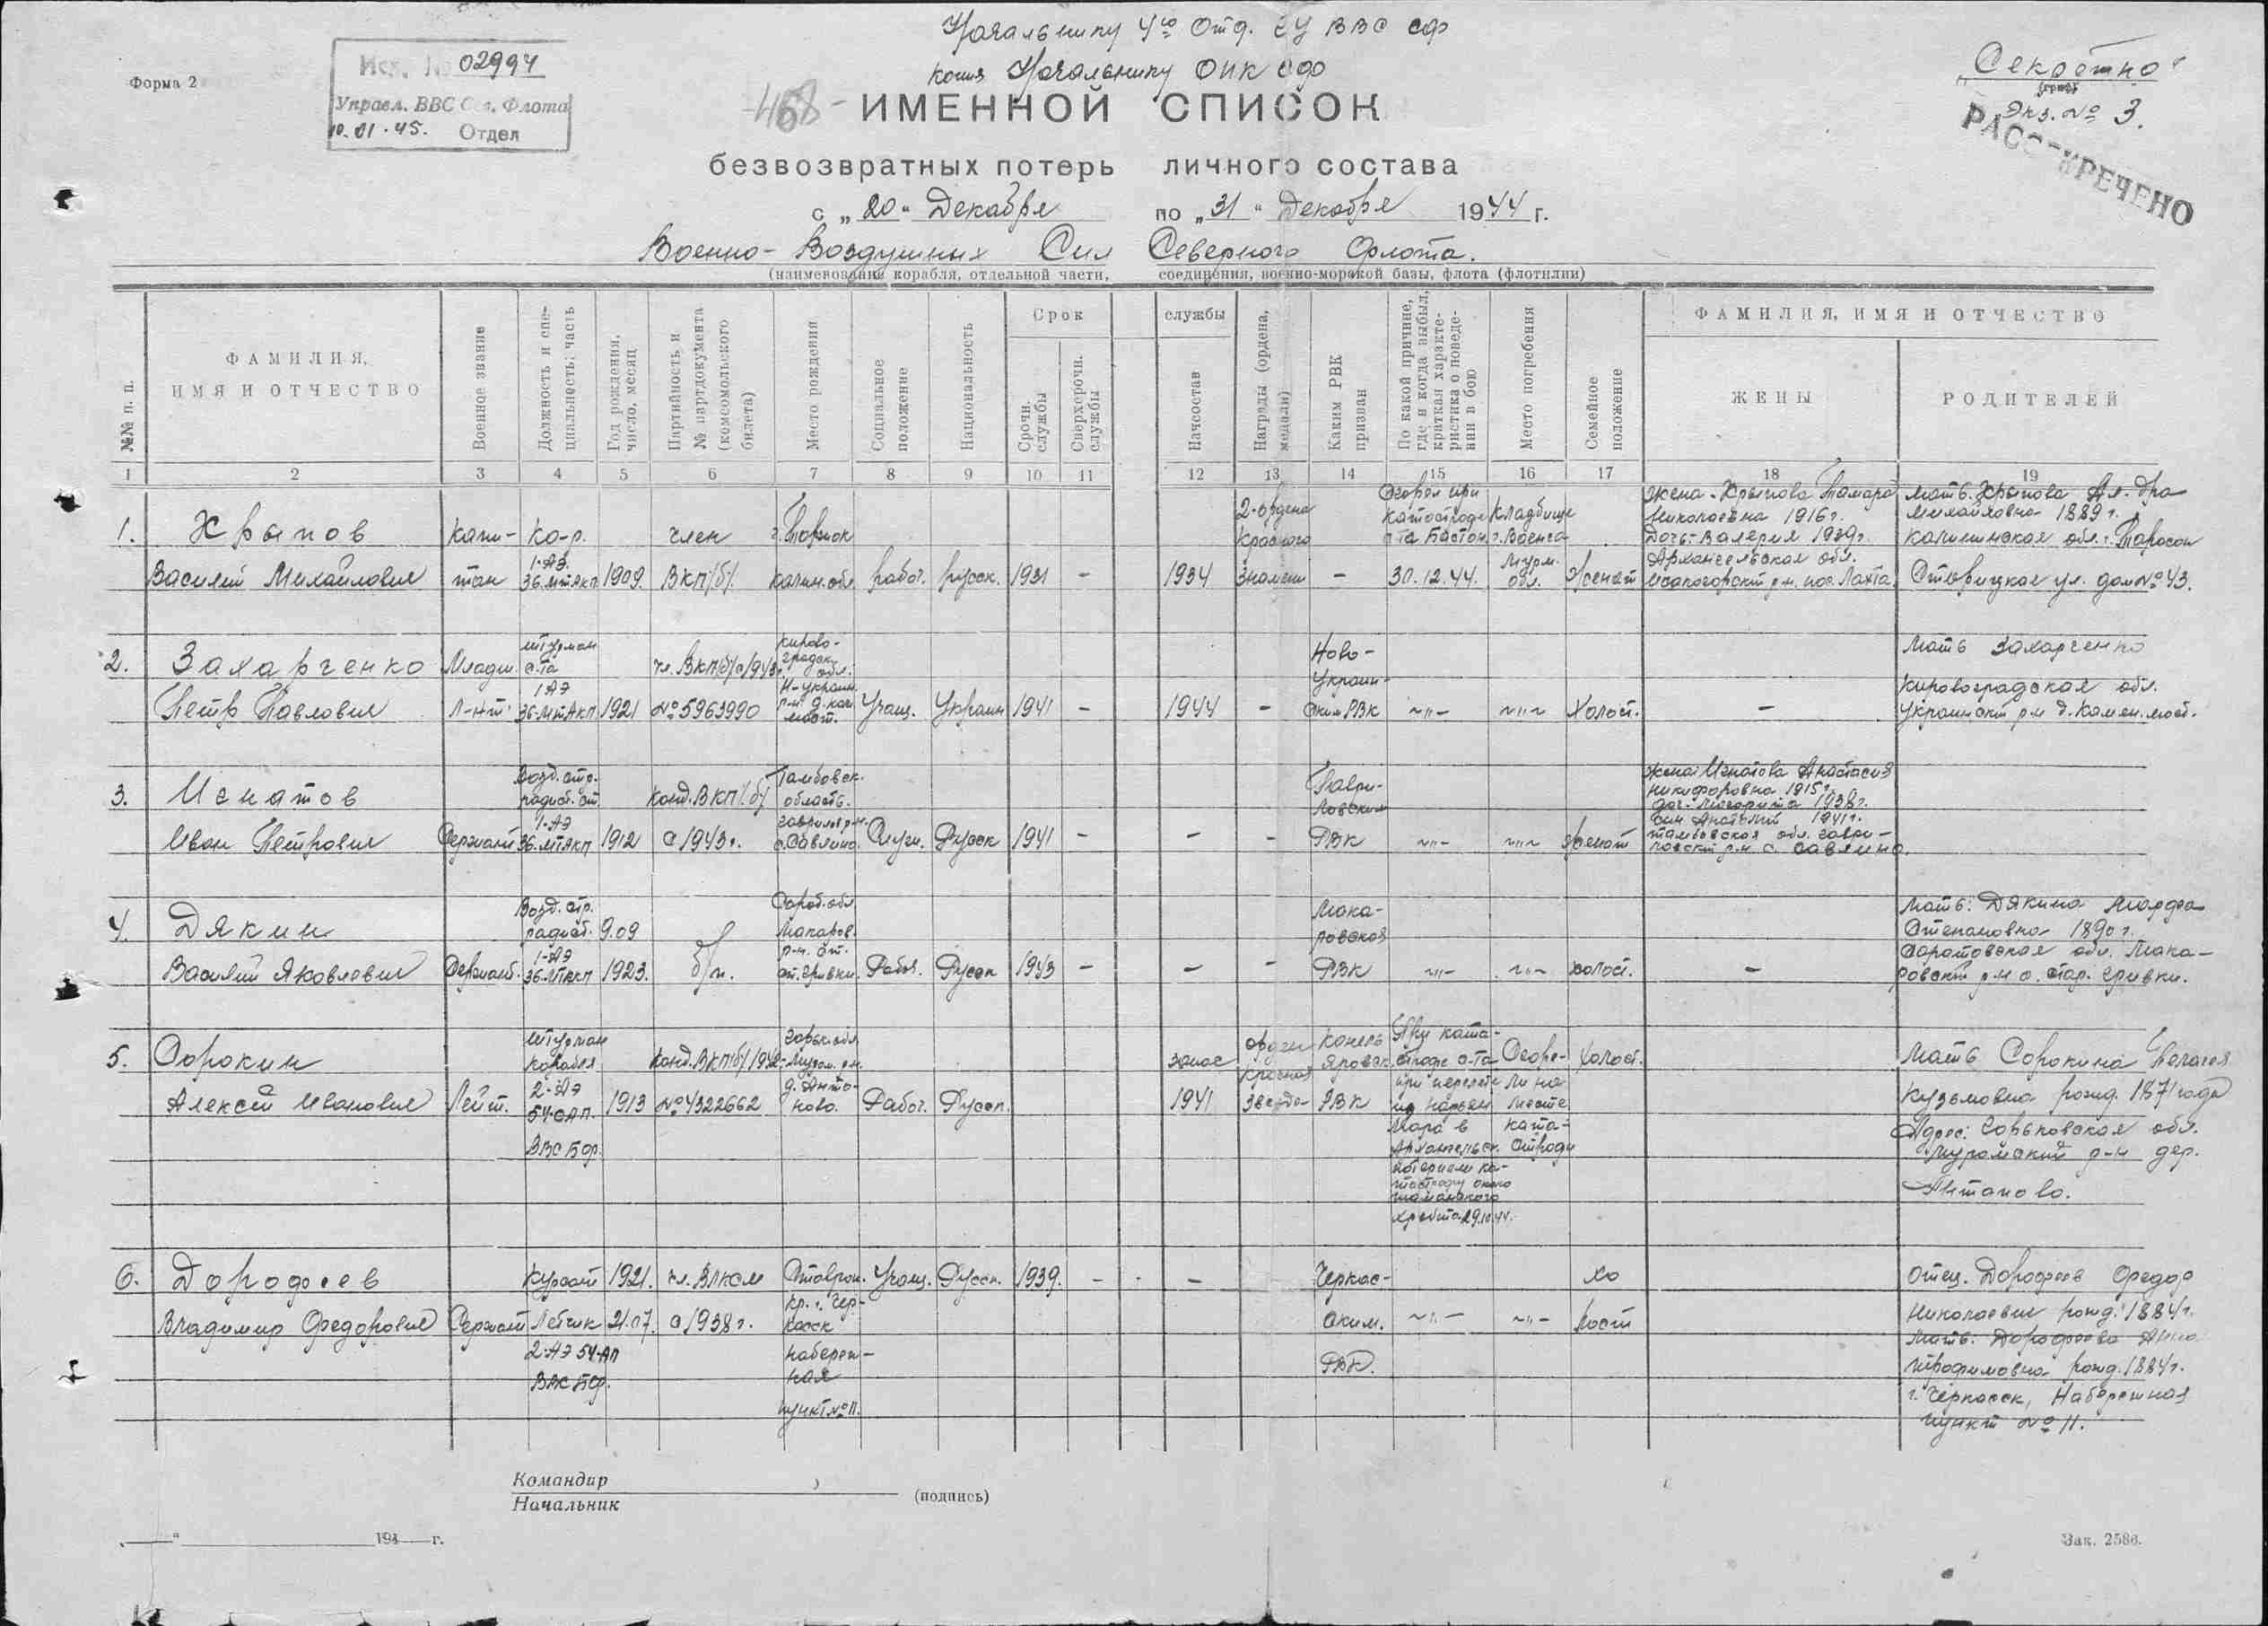 Начальнику 4го Отд. ВВС СФ
копия Начальнику ОИК СФ
Форма 2
Исх. № 02994
Управл. ВВС Сев. Флота
10.01.45. Отдел
"Секретно"
(гриф)
Экз. № 3.
РАССЕКРЕЧЕНО
468
ИМЕННОЙ СПИСОК
безвозвратных потерь личного состава
с „20" Декабря по „31" Декабря 1944 г.
Военно-Воздушных Сил Северного Флота.
(наименование корабля, отдельной части, соединения, военно-морской базы, флота (флотилии)
№№ п. п.
ФАМИЛИЯ, ИМЯ И ОТЧЕСТВО
Военное звание
Должность и специальность; часть
Год рождения, число, месяц
Партийность и № партдокумента (комсомольского билета)
Место рождения
Социальное положение
Национальность
Срок службы
Срочн. службы
Сверхсрочн. службы
Начсостав
Награды (ордена, медали)
Каким РВК призван
По какой причине, где и когда выбыл, краткая характеристика о поведении в бою
Место погребения
Семейное положение
ФАМИЛИЯ, ИМЯ И ОТЧЕСТВО
ЖЕНЫ
РОДИТЕЛЕЙ
1 2 3 4 5 6 7 8 9 10 11 12 13 14 15 16 17 18 19
1. Хрыпов
Василий Михайлович
капитан
к-р.
1-АЭ.
36.МТАКП
1909.
член
ВКП/б/
г. Торжок
калин. обл.
рабоч.
русск.
1931
-
1934
2-ордена
Красного
знамени
-
Сгорел при
катастрофе
с-та Бастон
30.12.44.
Кладбище
г. Ваенга
Мурм.
обл.
Женат
жена-Хрыпова Тамара
Николаевна 1916г.
Дочь-Валерия 1939г.
Архангельская обл.
Исакогорский р-н. пос. Лахта.
мать. Хрыпова Ал-дра
Михайловна 1889 г.
Калининская обл.
ул. дом № 43.
2. Захарченко
Петр Павлович
Младш.
л-нт.
штурман
с-та
1 АЭ
36-МТАКП
1921
чл. ВКП/б/ с 1943г.
№ 5963990
Кирово-
градск.
обл.
Н-Украин.
р-н д. кам.
мост.
Учащ.
Украин
1941
-
1944
-
Ново-
Украин-
ским РВК
~"~
~"~
Холост.
-
Мать Захарченко
Кировоградская обл.
Украинский р-н д. Камен. мост.
3. Игнатов
Иван Петрович
Сержант
Возд. стр.
радист. ст
1-АЭ
36-МТАКП
1912
канд. ВКП/б/
с 1943г.
Тамбовск.
область.
Гаврилов р-н.
с. Савлино.
Служ.
Русск
1941
-
-
-
Гаври-
ловским
РВК
~"~
~"~
Женат
жена Игнатова Анастасия
Никифоровна 1915г.
доч-Маргарита 1938г.
сын Анатолий 1941г.
тамбовская обл. гаври-
ловский р-н с. Савлино.
4. Дякин
Василий Яковлевич
Сержант.
Возд. стр.
радист.
1-АЭ
36-МТАКП
9.09
1923.
б/п.
Сарат. обл.
Макаров.
р-н. ст.
Рабоч.
Русск
1943
-
-
-
Мака-
ровским
РВК
~"~
~"~
холост.
-
Мать: Дякина Марфа
Степановна 1890г.
Саратовская обл. Мака-
ровский р-н с. стар. Гривки.
5. Сорокин
Алексей Иванович
Лейт.
штурман
корабля
2-АЭ
54-САП.
ВВС БФ.
1913
канд. ВКП/б/
№4322662
Горьк. обл.
Муром. р-н.
д. Анта-
ново.
Рабоч.
Русск.
запас
1941
орден
красная
звезда
РВК
При ката-
строфе с-та
при перелете
из Нарьян
Мара в
Архангельск.
потерпели ка-
тастрофу около
Тиманского
хребта 29.10.44.
Сгоре-
ли на
месте
ката-
строфы
Холост.
Мать Сорокина Пелагея
Кузьмовна рожд. 1871 года
Адрес: Горьковская обл.
Муромский р-н дер.
Антаново.
6. Дорофеев
Владимир Федорович
Сержант
Курсант
Летчик
2-АЭ 54-АП
ВВС БФ.
1921.
21.07.
чл. ВЛКСМ
с 1938г.
Ставроп.
кр. г. Чер-
касск
Набереж-
ная
пункт № 11.
Учащ.
Русск.
1939.
- - -
Черкас-
ским.
РВК.
~"~
~"~
Хо
лост
отец. Дорофеев Федор
Николаевич рожд. 1884г.
Мать: Дорофеева Анна
Трофимовна рожд. 1884г.
г. Черкасск, Набережная
пункт № 11.
Командир
Начальник
(подпись)
" 194 г.
Зак. 2586.